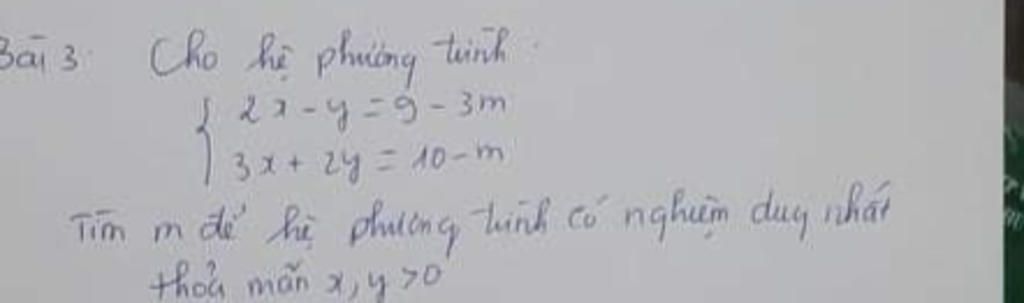 Bài 3. Cho hệ phương trình
2x - y = 9 - 3m
3x + 2y = 10 - m
Tìm m để hệ phương trình có nghiệm duy nhất
thoả mãn x, y > 0